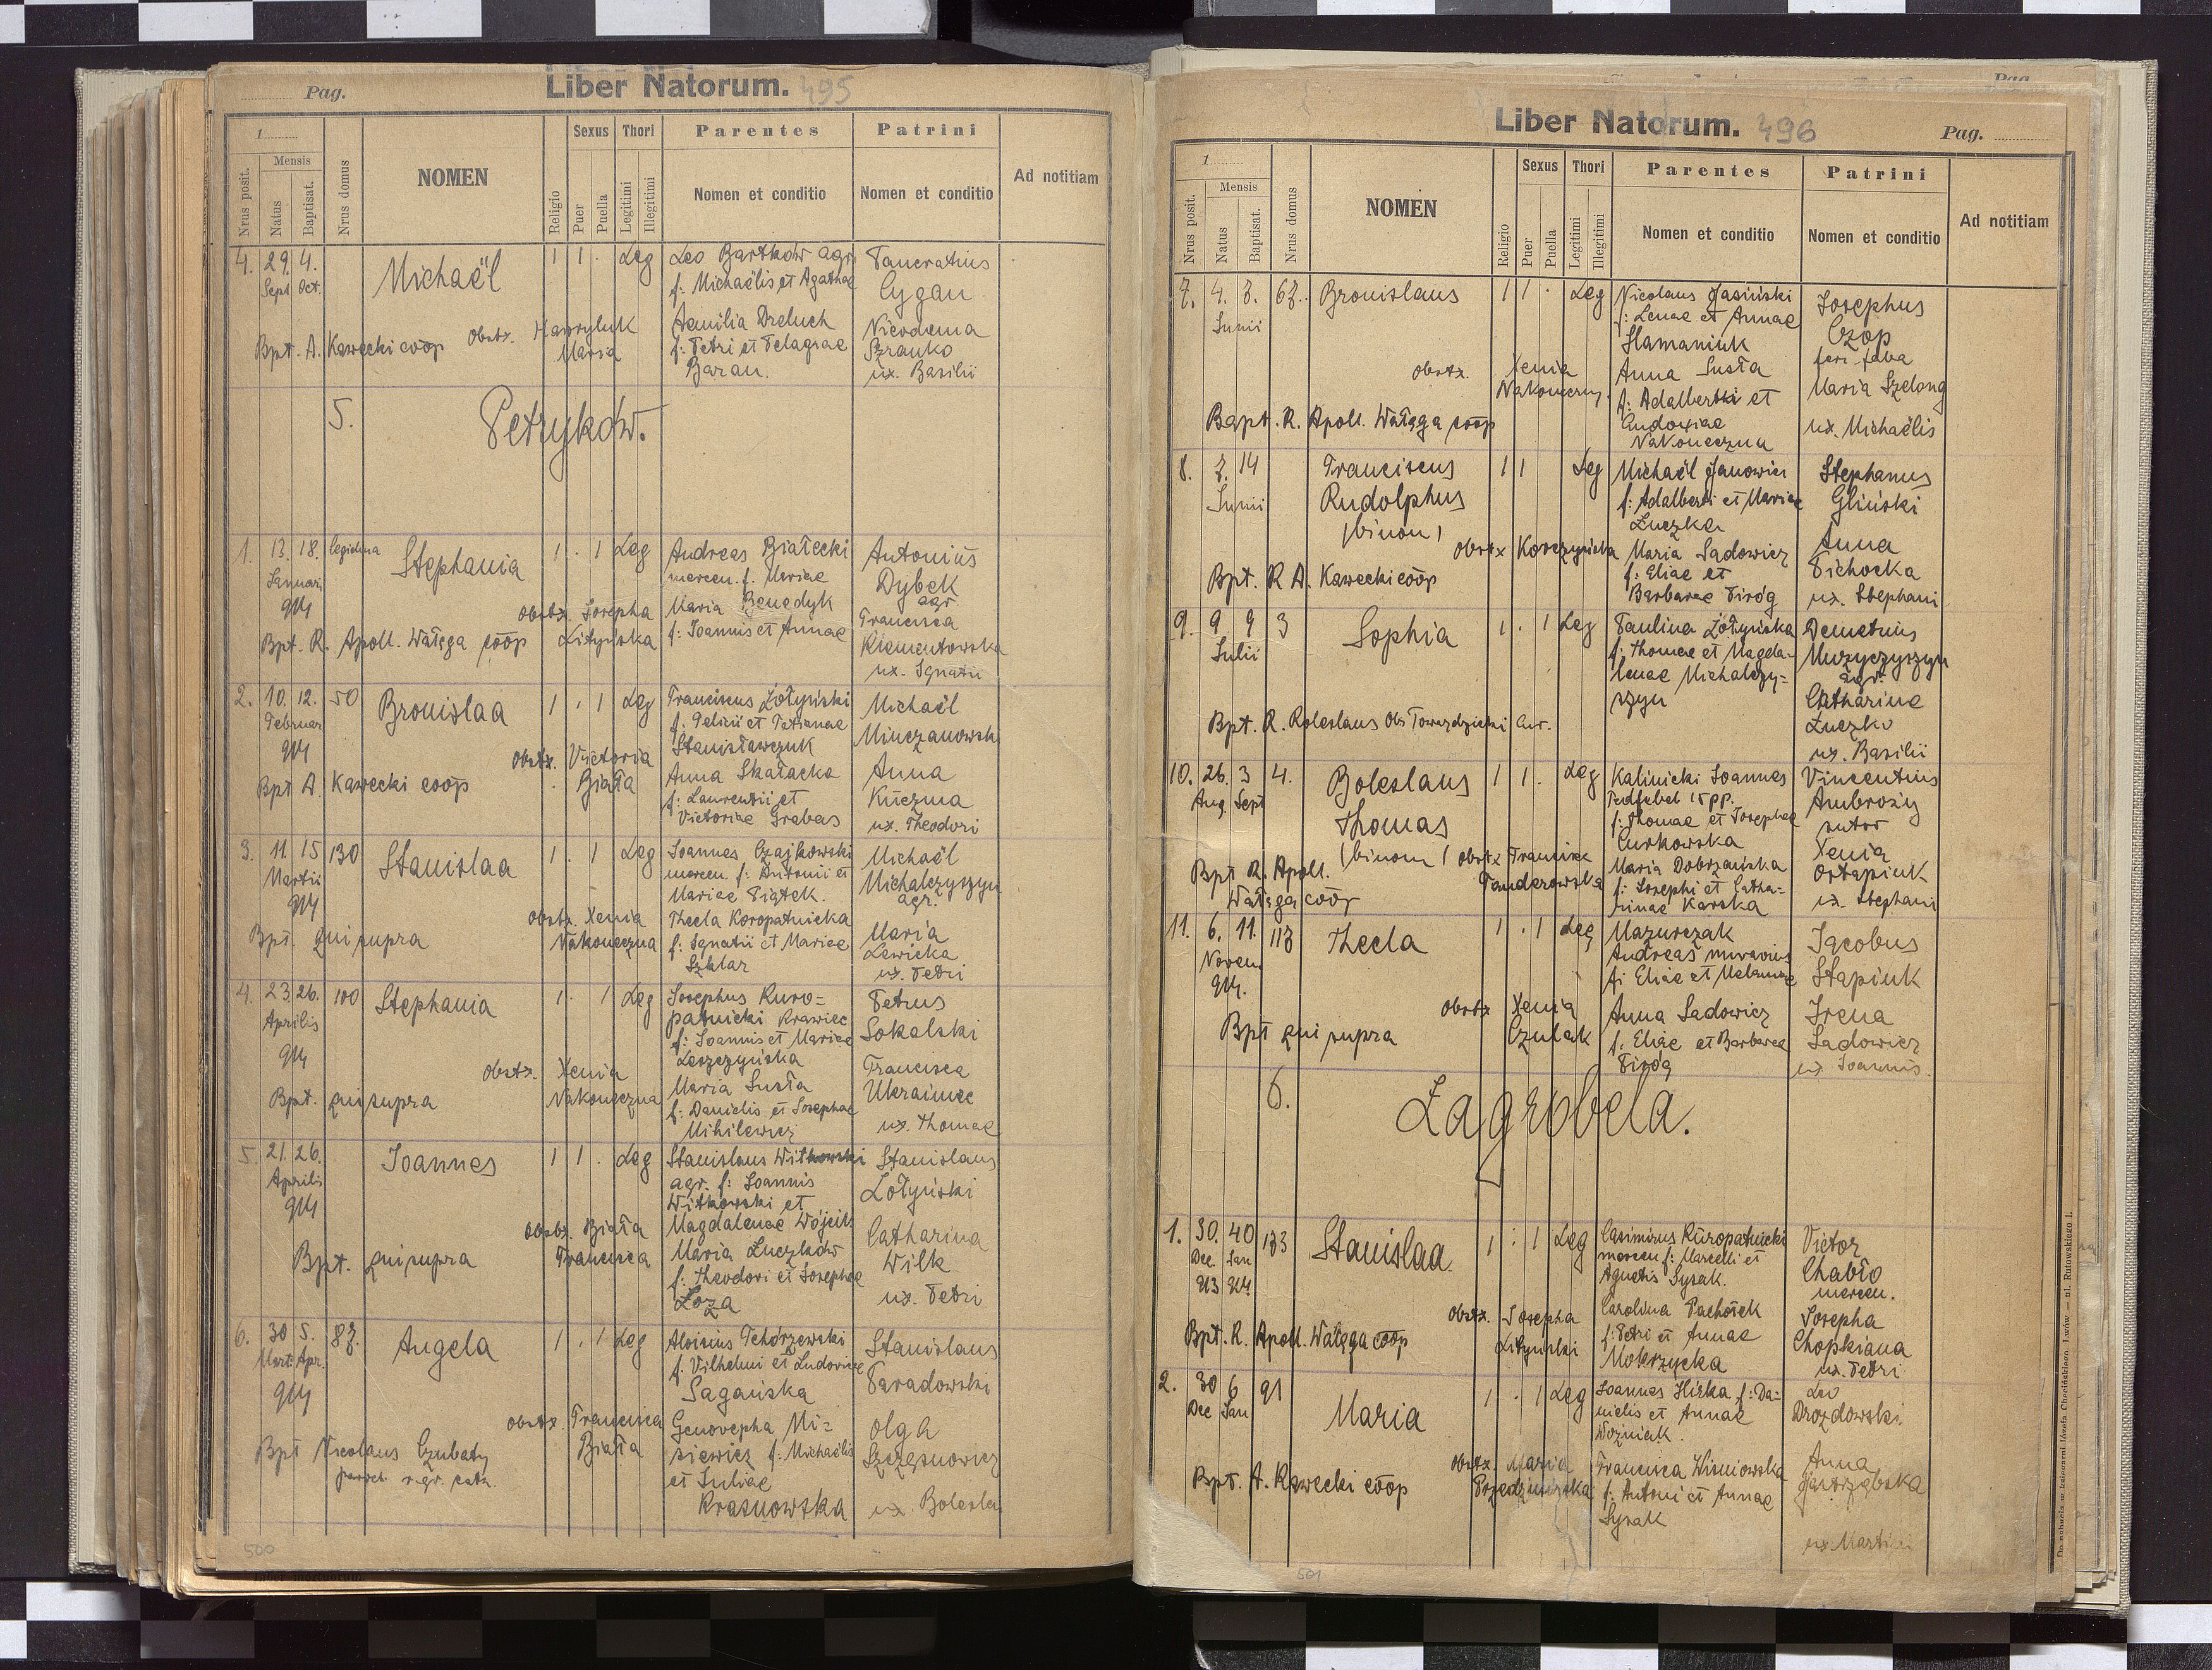 Pag.
Liber Natorum. 495
1
Sexus Thori Parentes Patrini
Mensis
Nrus posit. Natus Baptisat. Nrus domus NOMEN Religio Puer Puella Legitimi Illegitimi Nomen et conditio Nomen et conditio Ad notitiam
4. 29. 4. Michaël 1 1 . Leg Leo Bartków agr.
Sept Oct. f: Michaëlis et Agathae
Cygan
Bpt. A. Kawecki coop Obstx. Hawryluk Maria
Aemilia Dreluch
f: Petri et Pelagiae
Baran.
Nicodema
Szranko
ux. Basilii
5. Petryków.
1. 13. 18. Stephania 1 . 1 Leg Andreas Białecki
Januari mercen. f. Mariae
914
Maria Benedyk
f: Joannis et Annae
Antonius
Dybek
agr.
Francisca
Klementowska
ux. Ignatii
obstx. Josepha
Bpt. R. Apoll. Watęga coop Lityńska
2. 10. 12. 50 Bronislaa 1 . 1 Leg Franciscus Żołyński
Februar
914
Stanisławczuk
Anna Skałacka
f: Laurentii et
Victoriae Grabas
Michaël
Anna
Kuczma
ux. Theodori
obstx. Victoria
Biała
Bpt A. Kawecki coop
3. 11. 15 130 Stanislaa 1 . 1 Leg Joannes Czajkowski
Martii mercen. f: Antonii et
914 Mariae Piątek.
Thecla Koropatnicka
f: Ignatii et Mariae
Szklar
Michaël
Michalczyszyn
agr.
Maria
Lewicka
ux. Petri
obstx. Xenia
Nakoneczna
Bpt. qui supra
4. 23. 26. 100 Stephania 1 . 1 Leg Josephus Kuro=
Aprilis patnicki krawiec
914 f: Joannis et Mariae
Leszczyńska
Maria Susła
f: Danielis et Josephae
Mihilewicz
Petrus
Sokalski
Francisca
Ukrainiec
ux. Thomae
obstx. Xenia
Nakoneczna
Bpt. qui supra
5. 21. 26. Joannes 1 1 . Leg Stanislaus Witkowski
Aprilis agr. f: Joannis
914 Witkowski et
Magdalenae Wójcik
Maria Łuczków
f: Theodori et Josephae
Łoza
Stanislaus
Żołyński
Catharina
Wilk
ux. Petri
obstx. Biała
Francisca
Bpt. qui supra
6. 30 5. 87. Angela 1 . 1 Leg
Mart. Apr. f: Vilhelmi et Ludovicae
914 Sagańska
Genovepha Mi=
siewicz f: Michaëlis
et Juliae
Krasnowska
Stanislaus
Paradowski
Olga
Szczęsnowicz
ux. Boleslai
obstx. Francisca
Biała
Bpt Nicolaus Czubaty
500
Liber Natorum. 496
Pag.
1
Sexus Thori Parentes Patrini
Mensis
Nrus posit. Natus Baptisat. Nrus domus NOMEN Religio Puer Puella Legitimi Illegitimi Nomen et conditio Nomen et conditio Ad notitiam
7. 4. 7. 67. Bronislaus 1 1 . Leg Nicolaus Jasiński
Junii f: Lenae et Annae
Hamaniuk
Anna Susła
f: Adalberti et
Eudoxiae
Nakoneczna
Josephus
Czop
Maria Szelong
ux. Michaëlis
obstx. Xenia
Bapt. R. Apoll. Watęga coop
8. 7. 14 Franciscus 1 1 Leg Michaël Janowicz
Junii Rudolphus
(binom)
f: Adalberti et Mariae
Łuczka
Maria Sadowicz
f: Eliae et
Barbarae Piróg
Stephanus
Gliński
Anna
Cichocka
ux. Stephani
Obstx Korczyńska
Bpt. R A. Kawecki coop
9. 9 9 3 Sophia 1 . 1 Leg Paulina Żołyńska
Julii f: Thomae et Magda=
lenae Michalczy=
szyn
Demetrius
Muzyczyszyn
agr.
Catharina
Łuczko
ux. Basilii
Bpt. R. Boleslaus
10. 26. 3 4. Boleslaus 1 1 . Leg Kalinicki Joannes
Aug. Sept Thomas
(binom)
f: Thomae et Josephae
Curkowska
Maria Dobrzańska
f: Josephi et Catha=
rinae Karska
Vincentius
Ambroży
sutor
Xenia
Ostapiuk
ux. Stephani
obstx Francisca
Bpt R. Apoll.
Watęga coop
11. 6. 11. 117 Thecla 1 . 1 Leg Mazurczak
Novem Andreas murarius
914. f: Eliae et Melaniae
Anna Sadowicz
f: Eliae et Barbarae
Piróg
Jacobus
Stapiuk
Irena
Sadowicz
ux Joannis.
obstx Xenia
Czulak
Bpt qui supra
6. Zagrobela.
1. 30. 10 133 Stanislaa 1 . 1 Leg Casimirus Kuropatnicki
Dec Jan mercen f: Marcelli et
913 914 Agnetis Sysak.
Carolina Pachołek
f: Petri et Annae
Mokrzycka
Victor
Chabło
mercen.
Josepha
Chopkiana
ux. Petri
obstx. Josepha
Lityński
Bpt. R. Apoll. Watęga coop
2. 30 6 91 Maria 1 . 1 Leg Joannes Hirka f: Da=
Dec Jan nielis et Annae
Woźniak.
Francisca Wisniowska
f: Antoni et Annae
Sysak
Leo
Drozdowski
Anna
Jastrzębska
ux Martini
obstx. Maria
Bpt. A. Kawecki coop
501